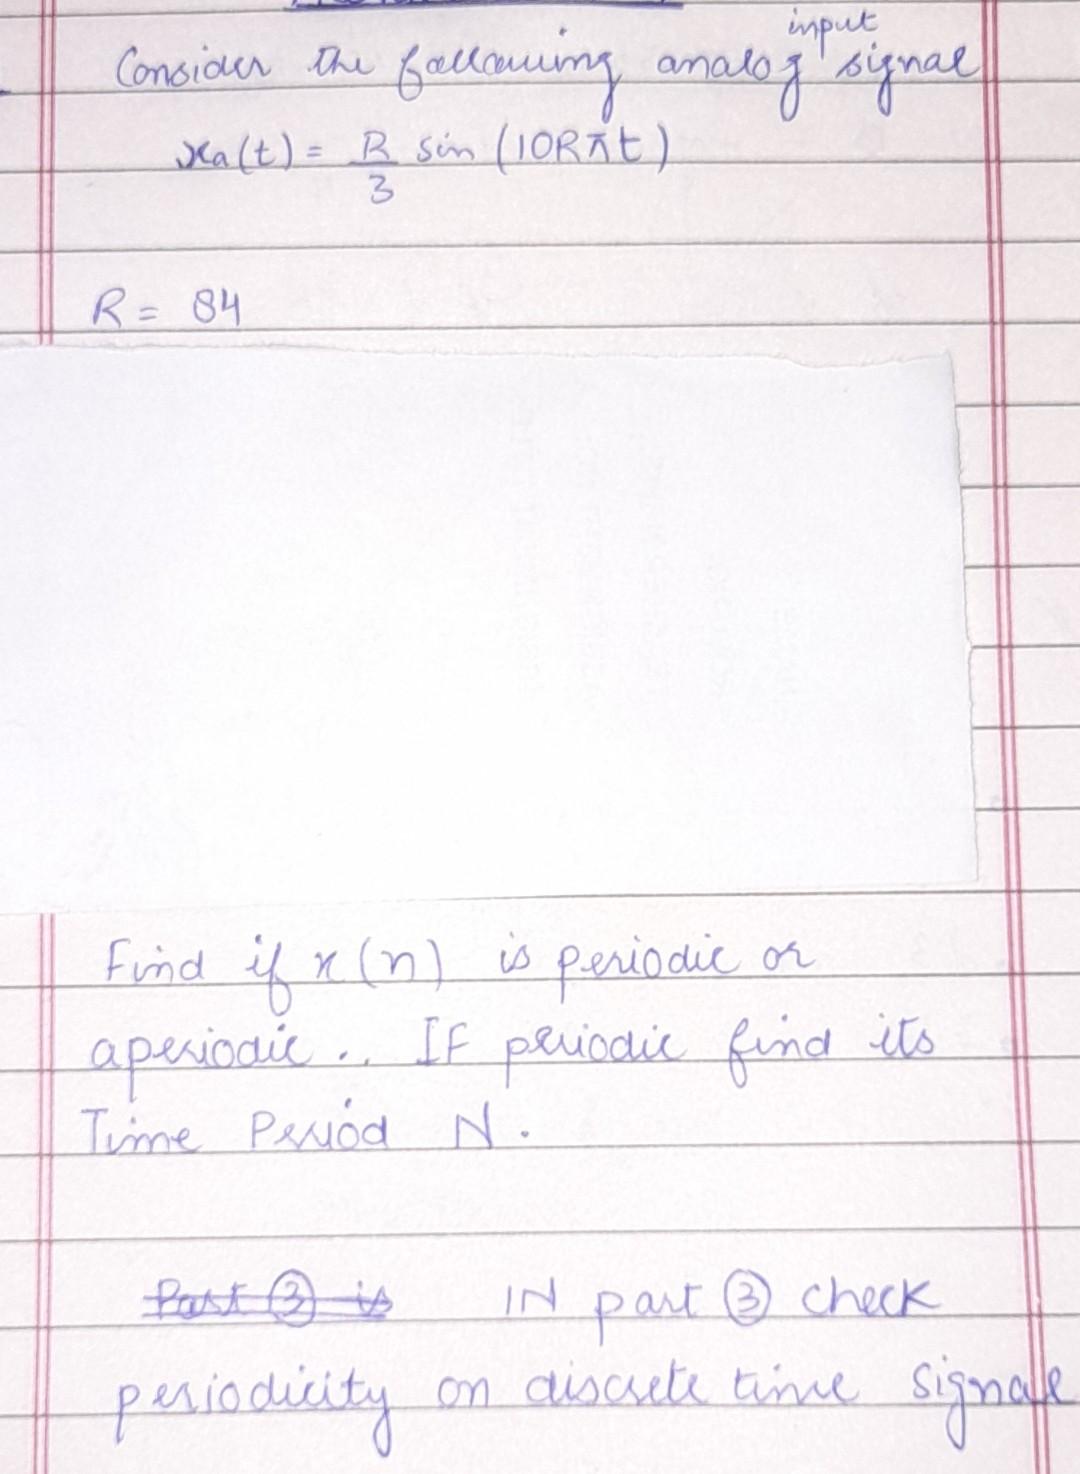 input
Consider the following analog signal
xa(t) = R/3 sin (10Rπt)
R = 84
Find if x(n) is periodic or
aperiodic.. IF periodic find its
Time Period N.
Part ③ is IN part ③ check
periodicity on discrete time signal